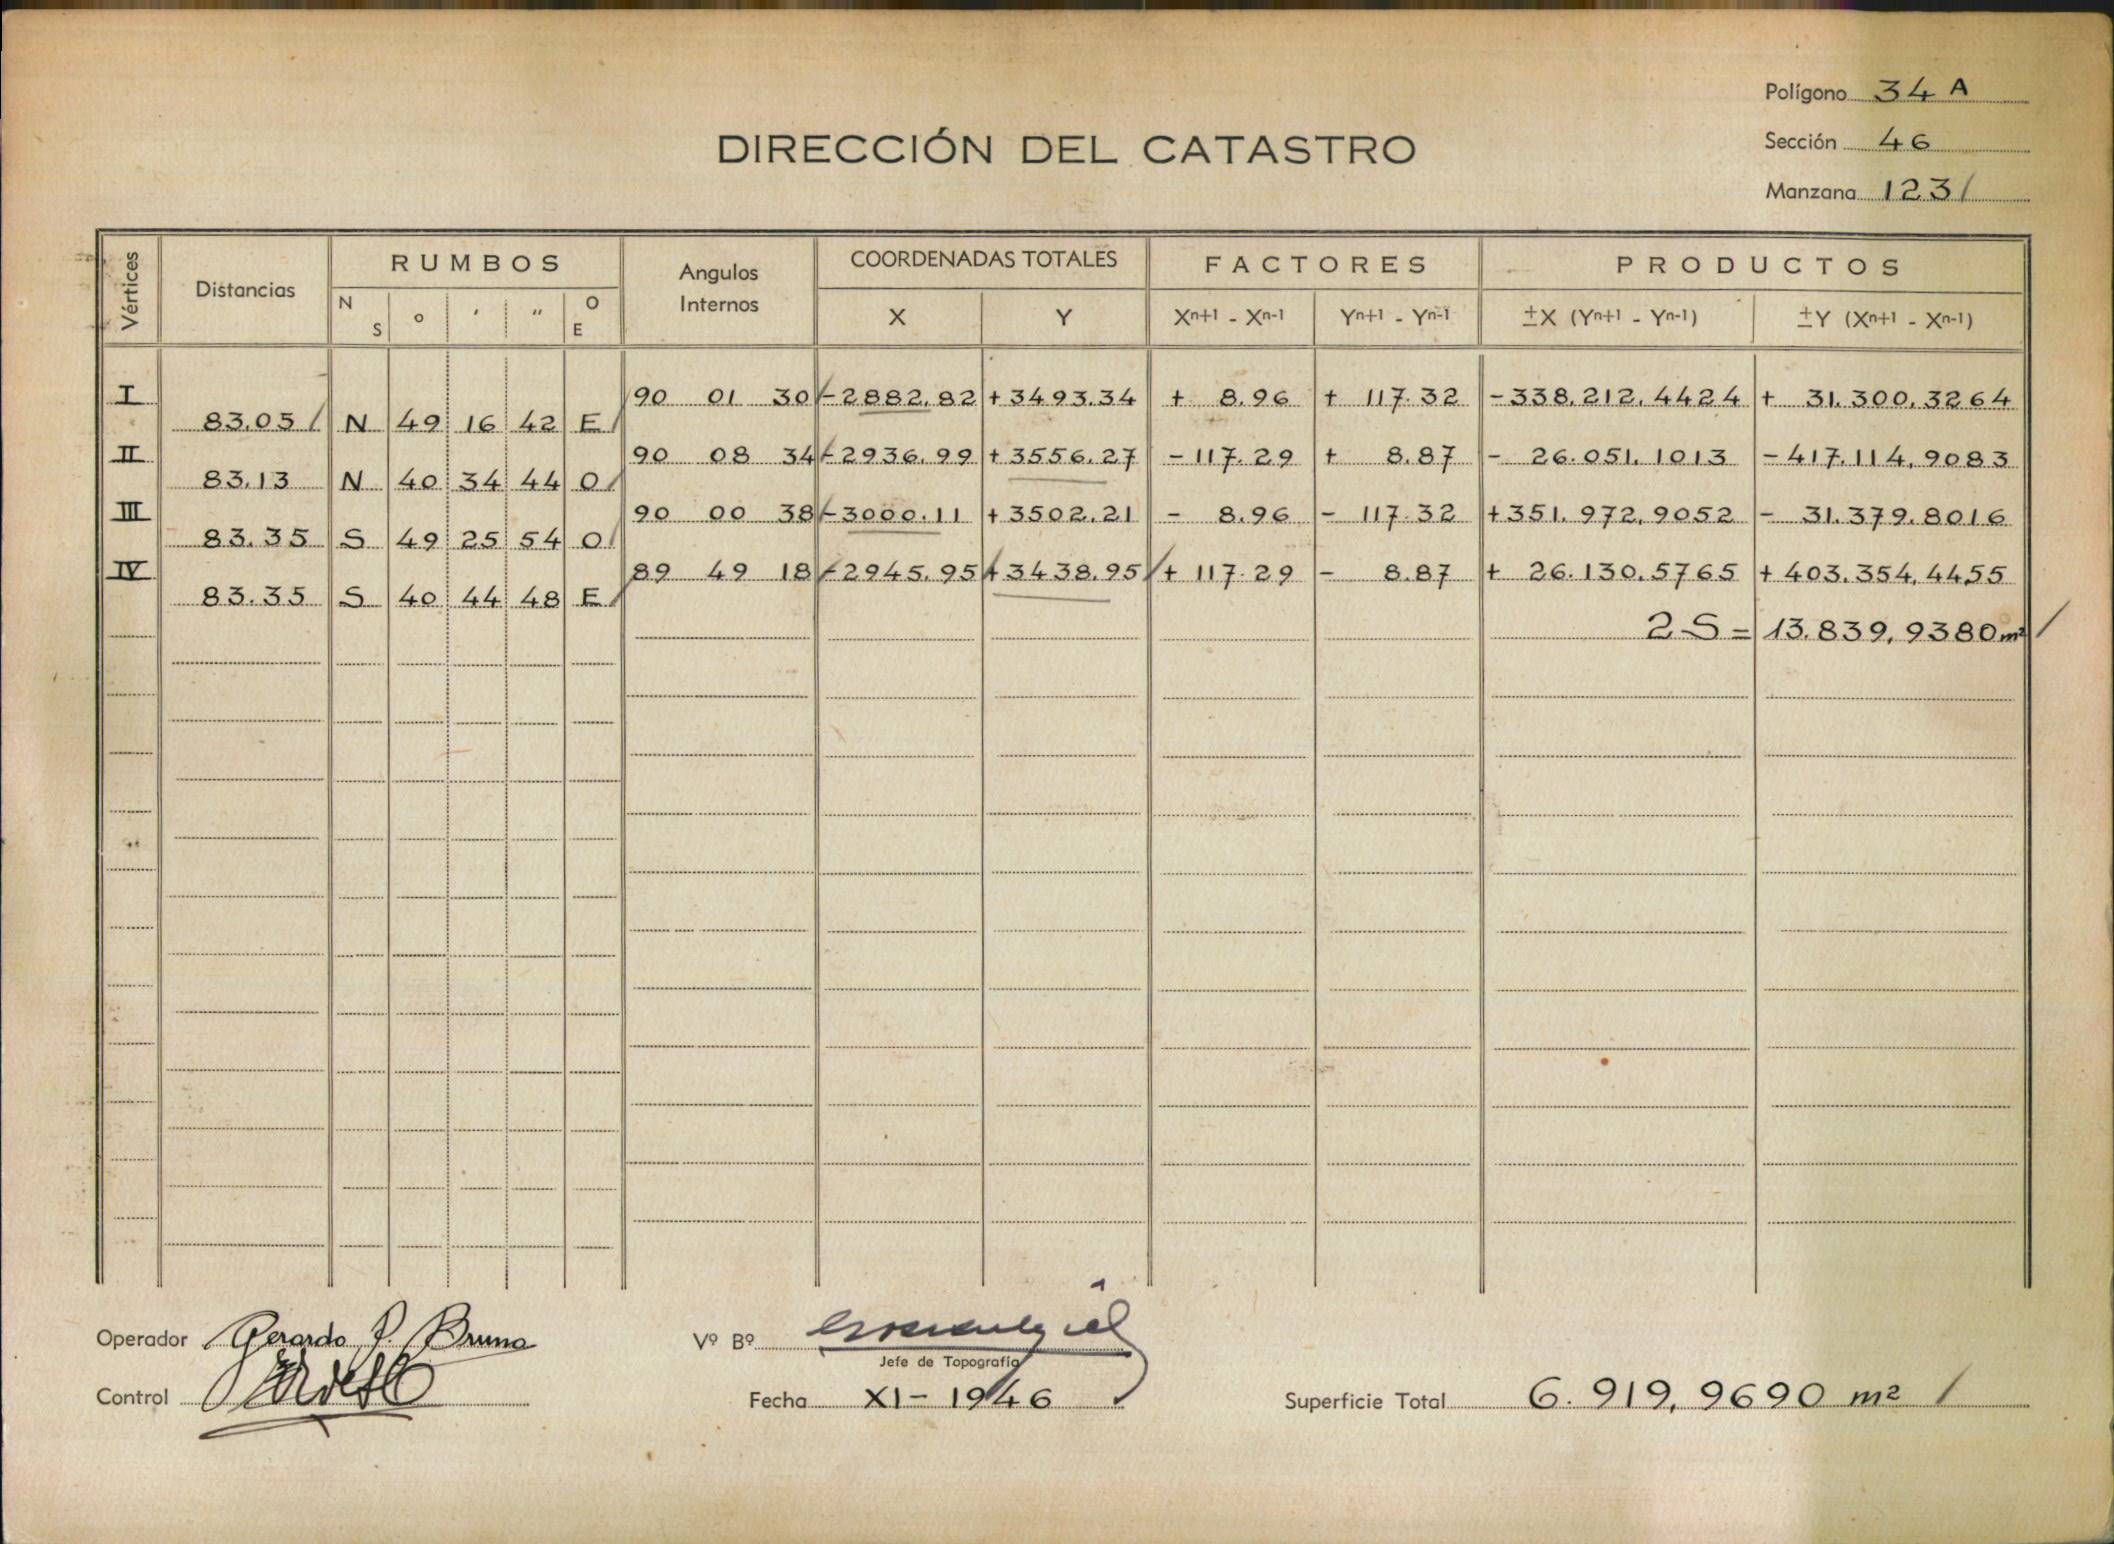 Polígono 34 A
DIRECCIÓN DEL CATASTRO
Sección 46
Manzana 123
Vértices
Distancias
RUMBOS
N S ° ' " O E
Angulos Internos
COORDENADAS TOTALES
X Y
FACTORES
Xⁿ⁺¹ - Xⁿ⁻¹ Yⁿ⁺¹ - Yⁿ⁻¹
PRODUCTOS
±X (Yⁿ⁺¹ - Yⁿ⁻¹) ±Y (Xⁿ⁺¹ - Xⁿ⁻¹)
I 90 01 30 -2882.82 +3493.34 + 8.96 + 117.32 -338.212,4424 + 31.300,3264
83.05 N 49 16 42 E
II 90 08 34 -2936.99 +3556.27 -117.29 + 8.87 - 26.051,1013 -417.114,9083
83.13 N 40 34 44 O
III 90 00 38 -3000.11 +3502.21 - 8.96 - 117.32 +351.972,9052 - 31.379,8016
83.35 S 49 25 54 O
IV 89 49 18 -2945.95 +3438.95 + 117.29 - 8.87 + 26.130,5765 +403.354,4455
83.35 S 40 44 48 E
2S = 13.839,9380 m²
Operador Gerardo P. Bruno
Vº Bº
Jefe de Topografía
Control
Fecha XI-1946
Superficie Total 6.919,9690 m²